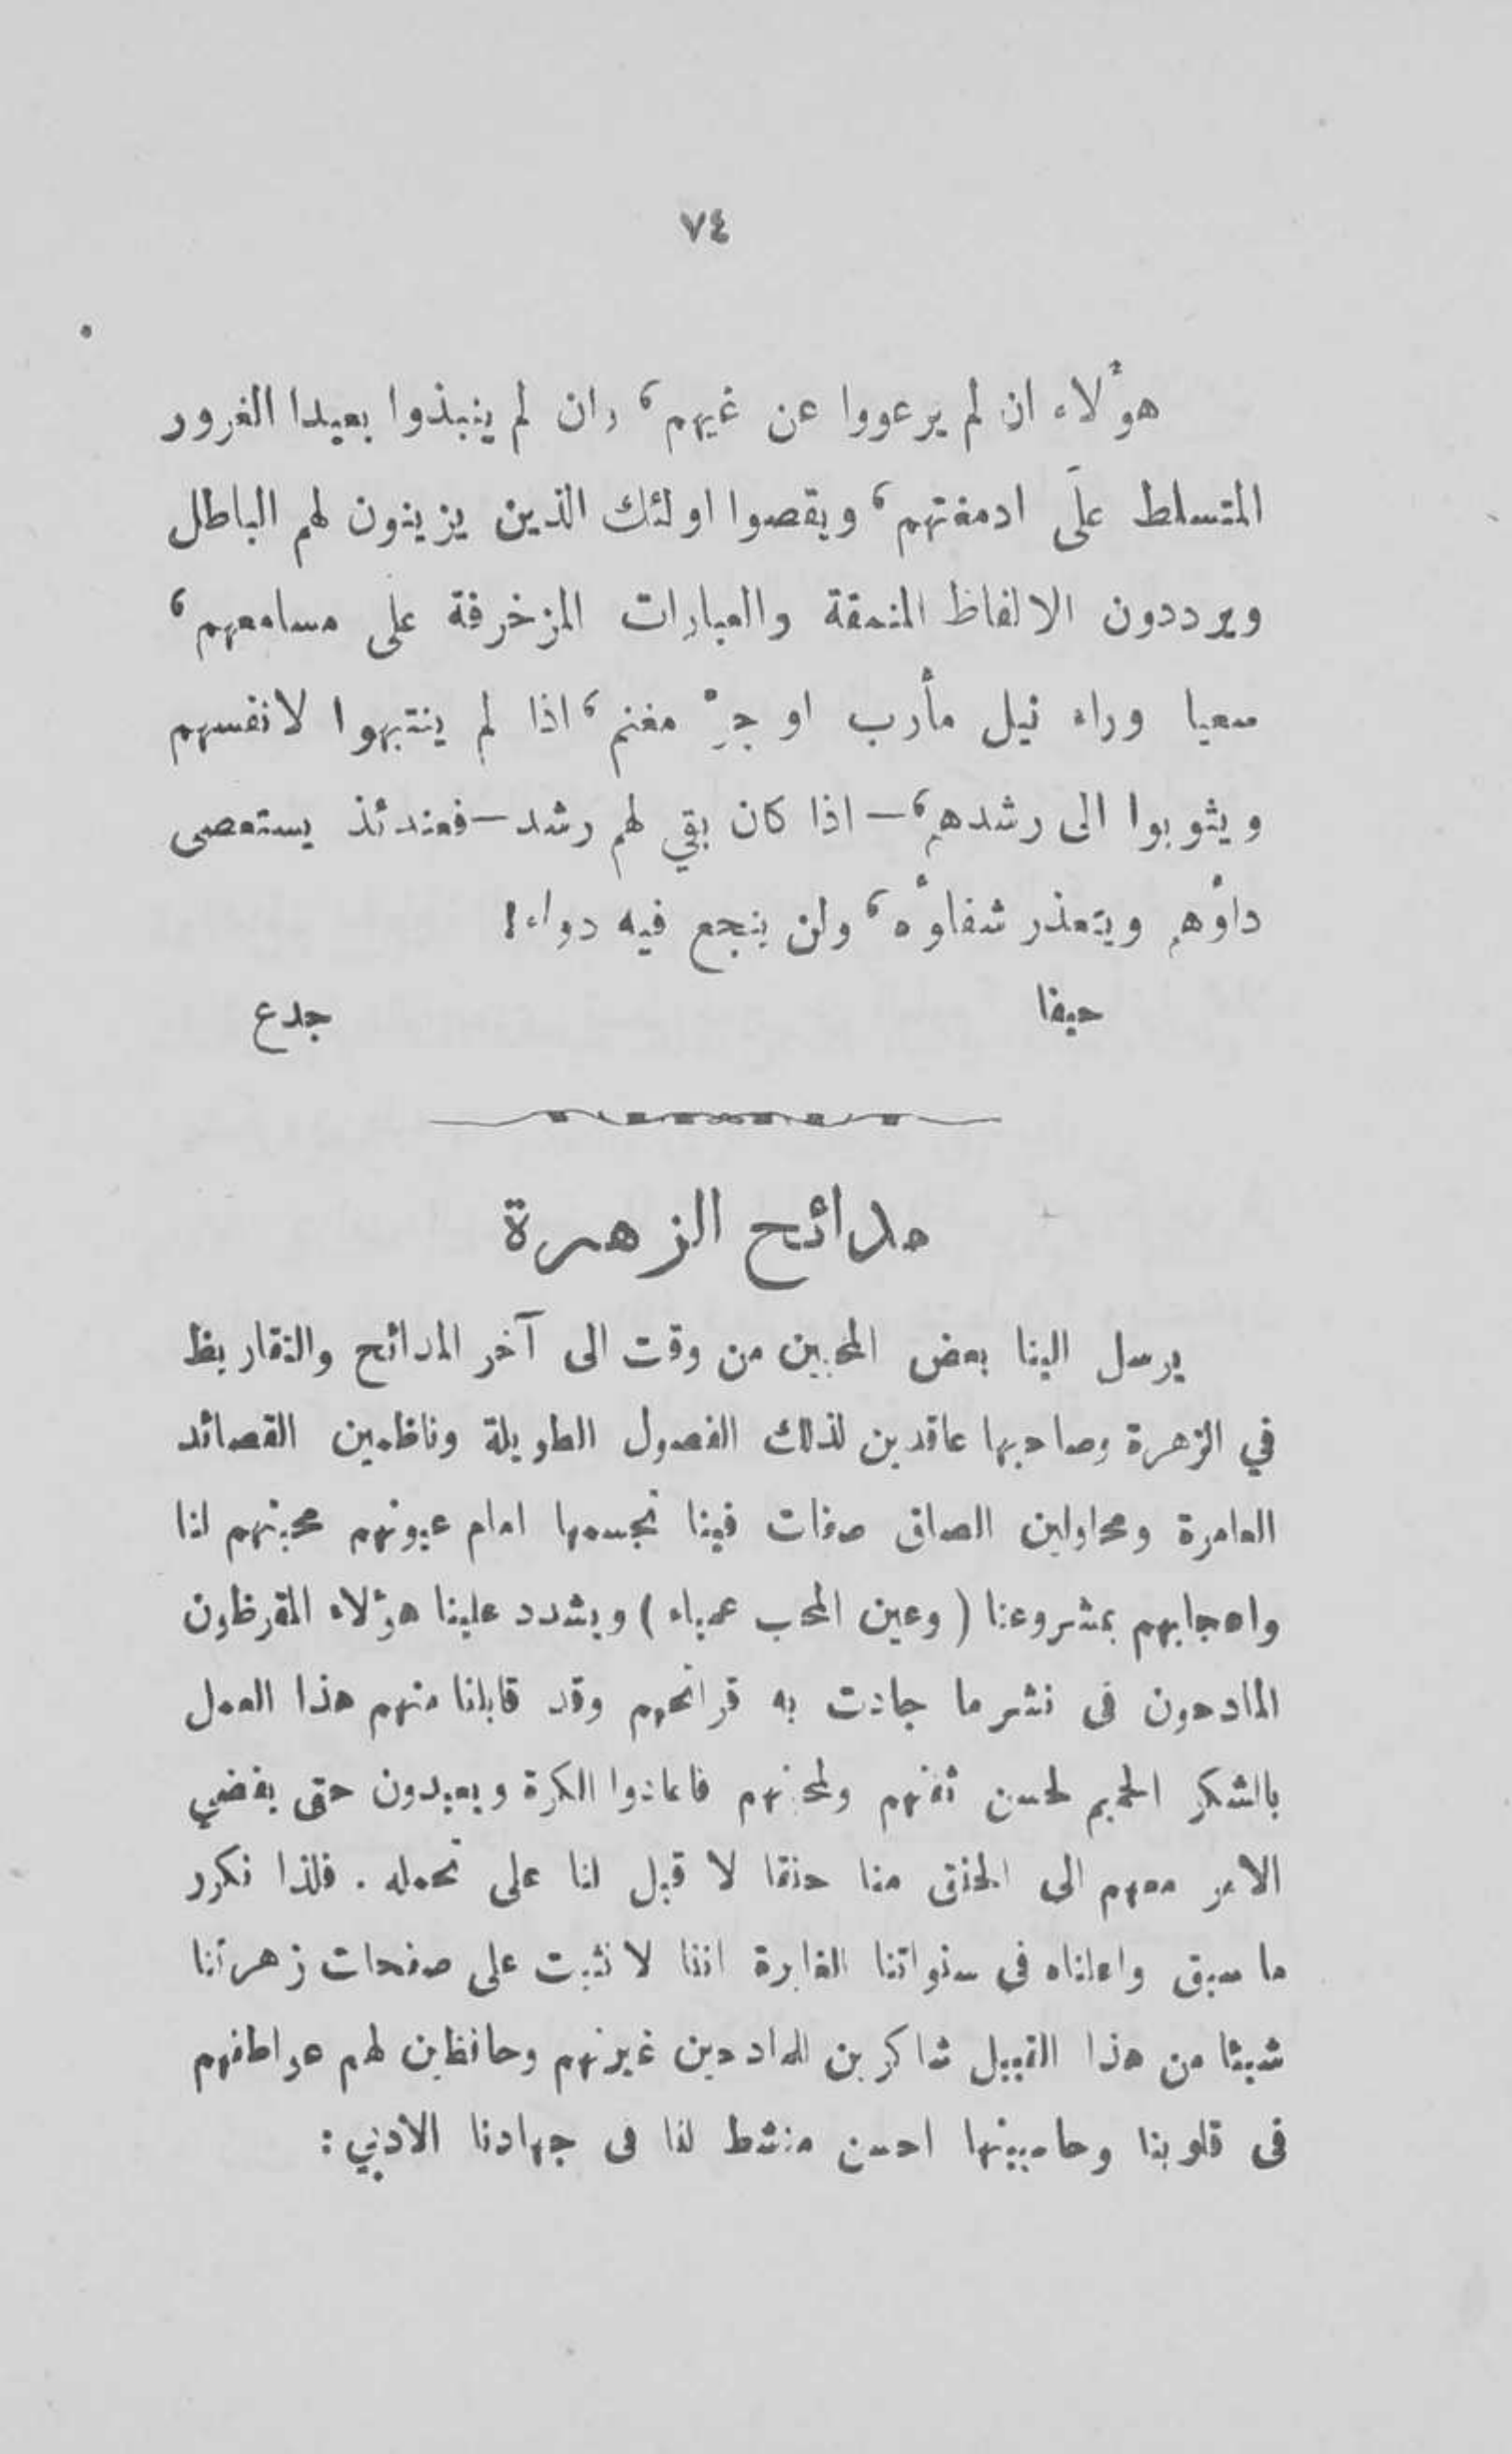 ٧٤
هؤلاء ان لم يرعووا عن غيهم، وان لم ينبذوا بعيدا الغرور
المتسلط علَى ادمغتهم، ويقصوا اولئك الذين يزينون لهم الباطل
ويرددون الالفاظ المنمقة والعبارات المزخرفة على مسامعهم،
سعيا وراء نيل مأرب او جرِّ مغنم، اذا لم ينتبهوا لانفسهم
ويثوبوا الى رشدهم، — اذا كان بقي لهم رشد — فعندئذ يستعصى
داؤهم ويتعذر شفاؤه، ولن ينجع فيه دواء!
حيفا جدع
مدائح الزهرة
يرسل الينا بعض المحبين من وقت الى آخر المدائح والتقاريظ
في الزهرة وصاحبها عاقدين لذلك الفصول الطويلة وناظمين القصائد
العامرة ومحاولين الصاق صفات فينا تجسمها امام عيونهم محبتهم لنا
واعجابهم بمشروعنا ( وعين المحب عمياء ) ويشدد علينا هؤلاء المقرظون
المادحون فى نشر ما جادت به قرائحهم وقد قابلنا منهم هذا العمل
بالشكر الجميم لحسن ثقتهم ولمحبتهم فاعادوا الكرة ويعيدون حتى يفضي
الامر معهم الى الحنق منا حنقا لا قبل لنا على تحمله . فلذا نكرر
ما سبق واعلناه فى سنواتنا الغابرة اننا لا نثبت على صفحات زهرتنا
شيئا من هذا القبيل شاكرين للمادحين غيرتهم وحافظين لهم عواطفهم
فى قلوبنا وحاسبينها احسن منشط لنا فى جهادنا الادبي :